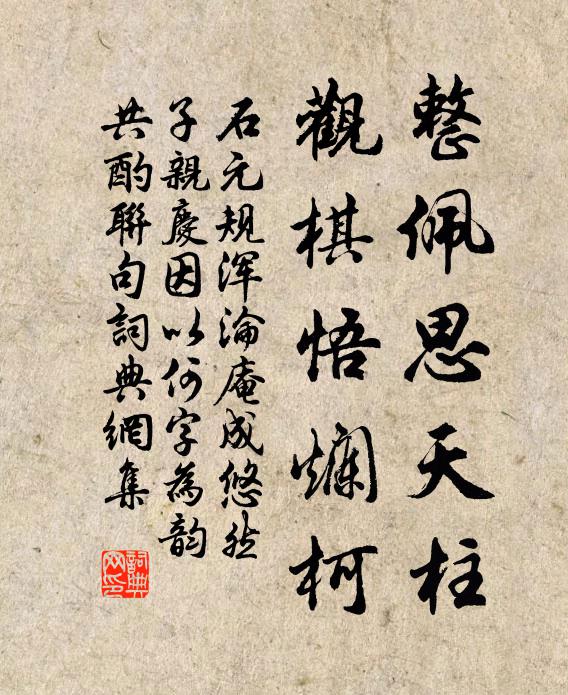 整佩思天柱
觀棋悟爛柯
石元規浑淪庵成悠然
子親慶因以何字為韵
共酌聯句詞典網集
詞典
网印